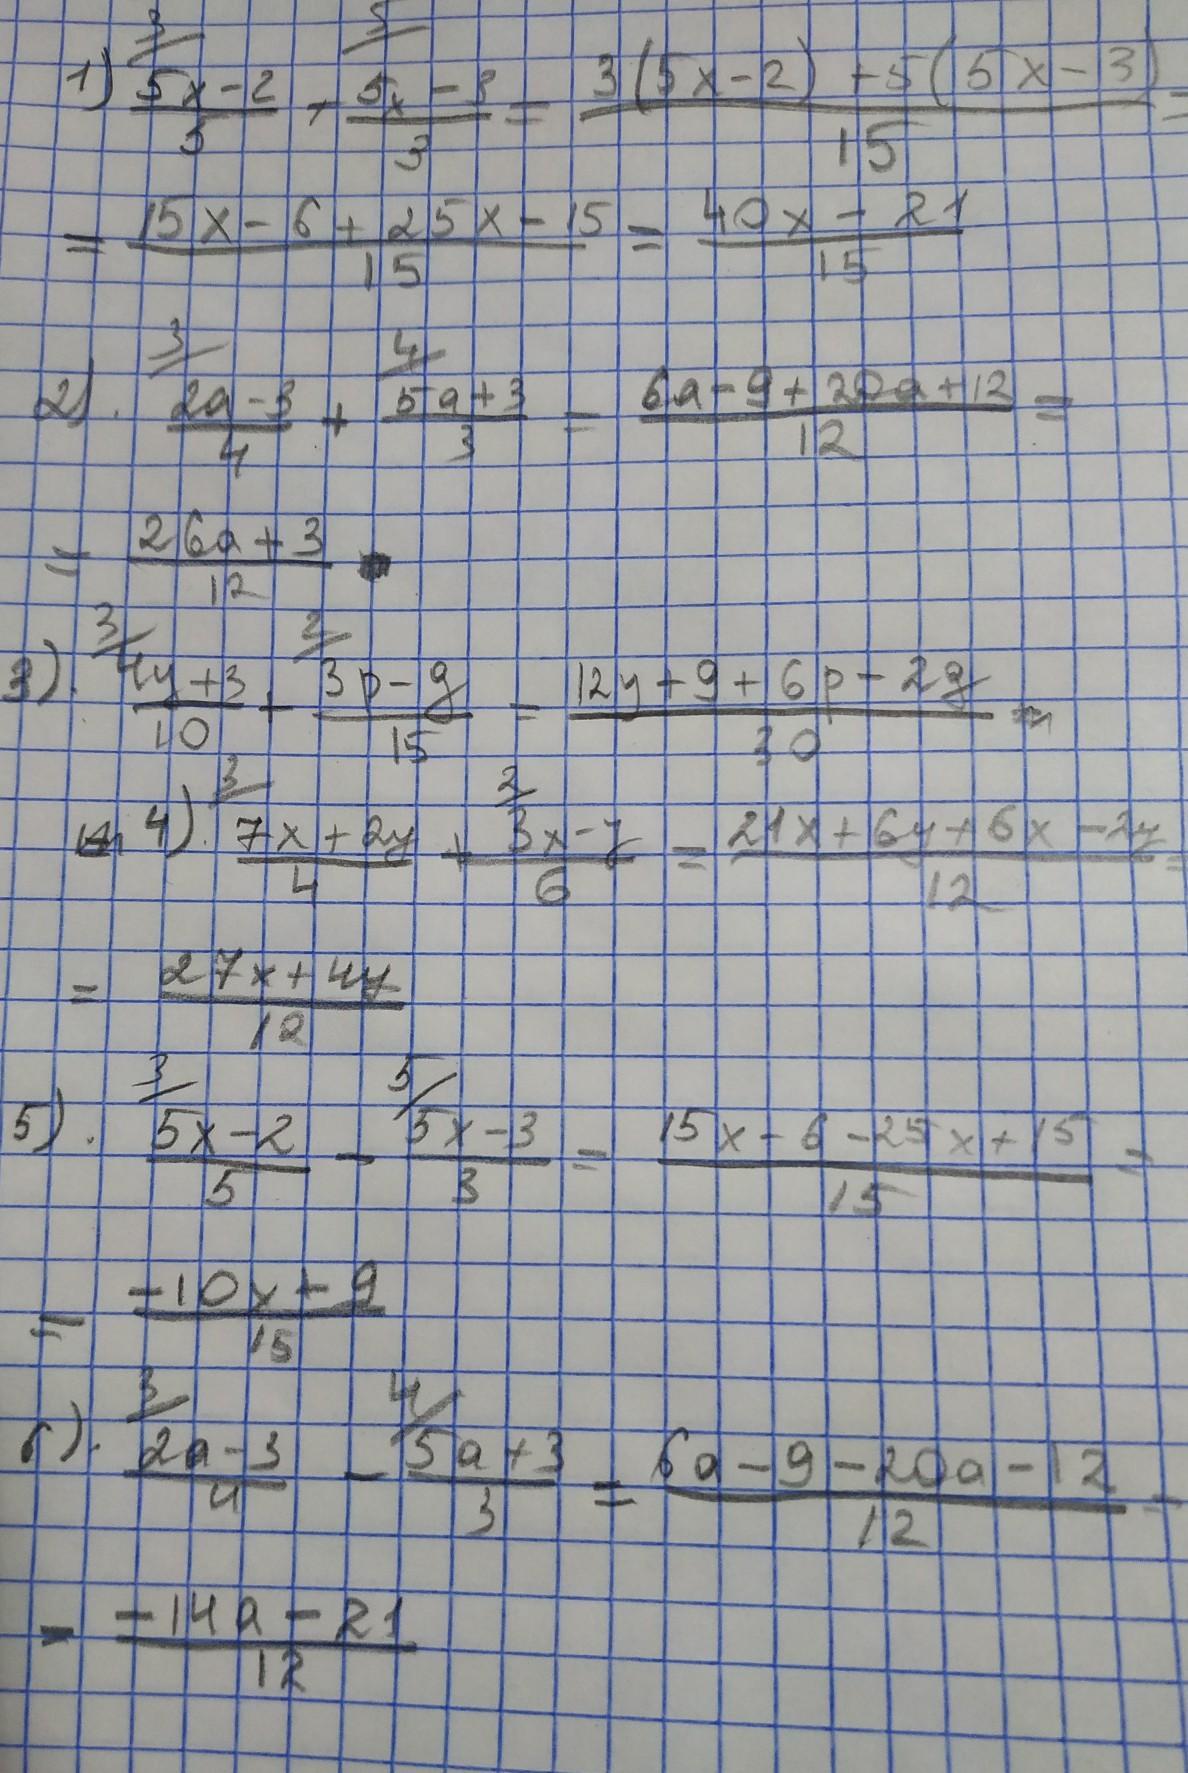 3 5
1) (5x-2)/5 + (5x-3)/3 = (3(5x-2)+5(5x-3))/15 =
= (15x-6+25x-15)/15 = (40x-21)/15
3 4
2). (2a-3)/4 + (5a+3)/3 = (6a-9+20a+12)/12 =
= (26a+3)/12
3 2
3). (4y+3)/10 + (3p-g)/15 = (12y+9+6p-2g)/30
3 2
4). (7x+2y)/4 + (3x-y)/6 = (21x+6y+6x-2y)/12 =
= (27x+4y)/12
3 5
5). (5x-2)/5 - (5x-3)/3 = (15x-6-25x+15)/15 =
= (-10x+9)/15
3 4
6). (2a-3)/4 - (5a+3)/3 = (6a-9-20a-12)/12 =
= (-14a-21)/12